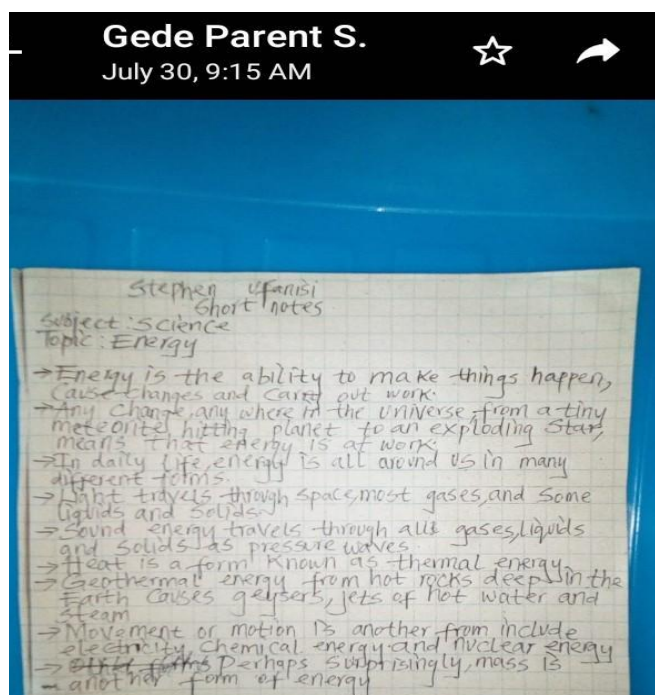 Gede Parent S.
July 30, 9:15 AM
Stephen Ufanisi
Short notes
Subject : Science
Topic : Energy
→ Energy is the ability to make things happen,
cause changes and carry out work.
→ Any change, any where in the universe, from a tiny
meteorite hitting planet to an exploding star,
means that energy is at work.
→ In daily life, energy is all around us in many
different forms.
→ Light travels through space, most gases, and some
liquids and solids.
→ Sound energy travels through all gases, liquids
and solids as pressure waves.
→ Heat is a form known as thermal energy.
→ Geothermal energy from hot rocks deep in the
Earth causes geysers, jets of hot water and
steam
→ Movement or motion is another, from include
electricity, chemical energy and nuclear energy
→ Perhaps surprisingly, mass is
another form of energy